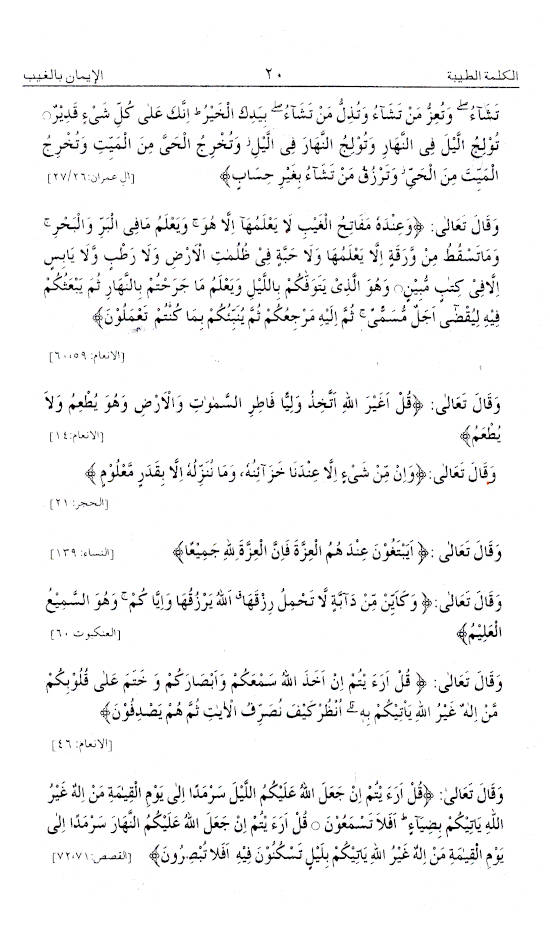 الكلمة الطيبة ٢٠ الإيمان بالغيب
تَشَآءُ ۖ وَتُعِزُّ مَنْ تَشَآءُ وَتُذِلُّ مَنْ تَشَآءُ ۖ بِيَدِكَ الْخَيْرُ ۖ اِنَّكَ عَلٰى كُلِّ شَىْءٍ قَدِيْرٌ ○
تُوْلِجُ الَّيْلَ فِى النَّهَارِ وَتُوْلِجُ النَّهَارَ فِى الَّيْلِ ۚ وَتُخْرِجُ الْحَىَّ مِنَ الْمَيِّتِ وَتُخْرِجُ
الْمَيِّتَ مِنَ الْحَىِّ ۚ وَتَرْزُقُ مَنْ تَشَآءُ بِغَيْرِ حِسَابٍ﴾ [الِ عمران:٢٧/٢٦]
وَقَالَ تَعَالٰى: ﴿وَعِنْدَهٗ مَفَاتِحُ الْغَيْبِ لَا يَعْلَمُهَآ اِلَّا هُوَ ۚ وَيَعْلَمُ مَافِى الْبَرِّ وَالْبَحْرِ ۚ
وَمَاتَسْقُطُ مِنْ وَّرَقَةٍ اِلَّا يَعْلَمُهَا وَلَا حَبَّةٍ فِىْ ظُلُمٰتِ الْاَرْضِ وَلَا رَطْبٍ وَّلَا يَابِسٍ
اِلَّافِىْ كِتٰبٍ مُّبِيْنٍ○ وَهُوَ الَّذِىْ يَتَوَفّٰكُمْ بِاللَّيْلِ وَيَعْلَمُ مَا جَرَحْتُمْ بِالنَّهَارِ ثُمَّ يَبْعَثُكُمْ
فِيْهِ لِيُقْضٰٓى اَجَلٌ مُّسَمًّى ۚ ثُمَّ اِلَيْهِ مَرْجِعُكُمْ ثُمَّ يُنَبِّئُكُمْ بِمَا كُنْتُمْ تَعْمَلُوْنَ﴾
[الانعام:٦٠،٥٩]
وَقَالَ تَعَالٰى: ﴿قُلْ اَغَيْرَ اللهِ اَتَّخِذُ وَلِيًّا فَاطِرِ السَّمٰوٰتِ وَالْاَرْضِ وَهُوَ يُطْعِمُ وَلاَ
يُطْعَمُ﴾ [الانعام:١٤]
وَقَالَ تَعَالٰى:﴿وَاِنْ مِّنْ شَىْءٍ اِلَّا عِنْدَنَا خَزَآئِنُهٗ، وَمَا نُنَزِّلُهٗ اِلَّا بِقَدَرٍ مَّعْلُوْمٍ ﴾
[الحجر:٢١]
وَقَالَ تَعَالٰى :﴿ اَيَبْتَغُوْنَ عِنْدَ هُمُ الْعِزَّةَ فَاِنَّ الْعِزَّةَ لِلهِ جَمِيْعًا﴾ [النساء:١٣٩]
وَقَالَ تَعَالٰى :﴿ وَكَاَيِّنْ مِّنْ دَآبَّةٍ لَّا تَحْمِلُ رِزْقَهَا ۖ اَللهُ يَرْزُقُهَا وَاِيَّا كُمْ ۚ وَهُوَ السَّمِيْعُ
الْعَلِيْمُ﴾ [العنكبوت ٦٠]
وَقَالَ تَعَالٰى :﴿ قُلْ اَرَءَ يْتُمْ اِنْ اَخَذَ اللهُ سَمْعَكُمْ وَاَبْصَارَكُمْ وَ خَتَمَ عَلٰى قُلُوْبِكُمْ
مَّنْ اِلٰهٌ غَيْرُ اللهِ يَاْتِيْكُمْ بِهٖ ۗ اُنْظُرْكَيْفَ نُصَرِّفُ الْاٰيٰتِ ثُمَّ هُمْ يَصْدِفُوْنَ﴾
[الانعام:٤٦]
وَقَالَ تَعَالٰى: ﴿قُلْ اَرَءَ يْتُمْ اِنْ جَعَلَ اللهُ عَلَيْكُمُ اللَّيْلَ سَرْمَدًا اِلٰى يَوْمِ الْقِيٰمَةِ مَنْ اِلٰهٌ غَيْرُ
اللهِ يَاْتِيْكُمْ بِضِيَآءٍ ۖ اَفَلَا تَسْمَعُوْنَ ○ قُلْ اَرَءَ يْتُمْ اِنْ جَعَلَ اللهُ عَلَيْكُمُ النَّهَارَ سَرْمَدًا اِلٰى
يَوْمِ الْقِيٰمَةِ مَنْ اِلٰهٌ غَيْرُ اللهِ يَاْتِيْكُمْ بِلَيْلٍ تَسْكُنُوْنَ فِيْهِ اَفَلَا تُبْصِرُوْنَ﴾ [القصص:٧٢،٧١]